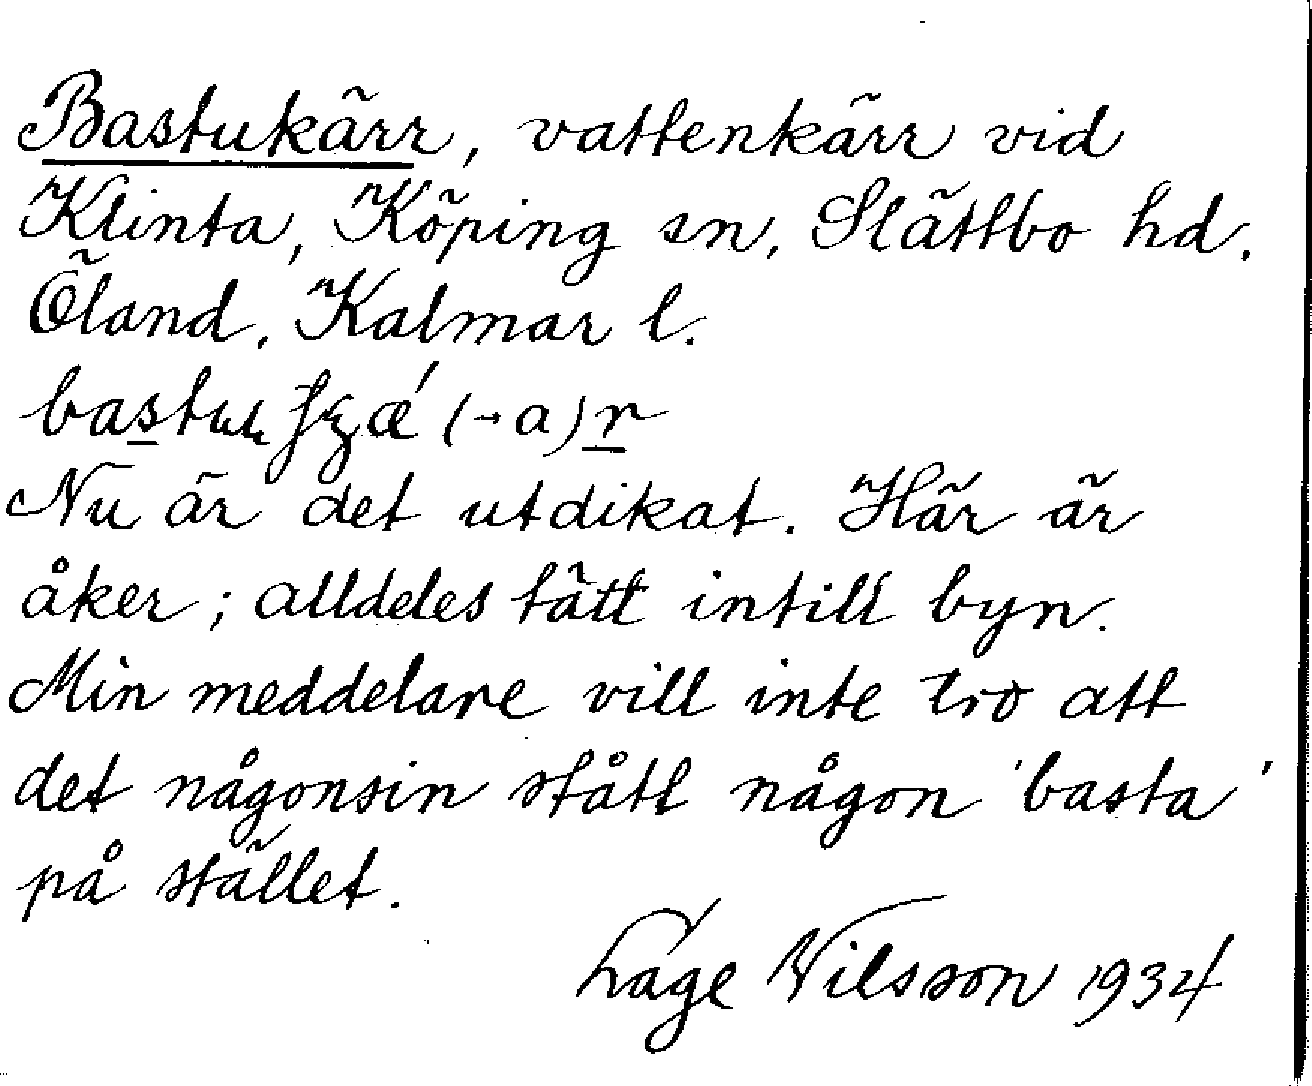 Bastukärr, vattenkärr vid
Klinta, Köping sn, Slättbo hd.
Öland, Kalmar l.
Nu är det utdikat. Här är
åker; alldeles tätt intill byn.
Min meddelare vill inte tro att
det någonsin stått någon 'basta'
på stället.
Lage Nilsson 1934